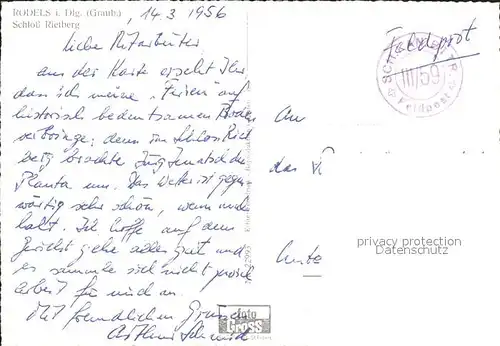 RODELS i. Dlg. (Graub.)
Schloß Rietberg
14.3.1956
Feldpost
III/59
Feldpost
Liebe Mitarbeiter
aus der Karte ersehet Ihr
dass ich meine "Ferien" auf
historisch bedeutsamem Boden
verbringe; denn im Schloss Riet
berg brachte Jürg Jenatsch den
Planta um. Das Wetter ist gegen
wärtig sehr schön, wenn auch
kalt. Ich hoffe auf dem
Gericht gehe alles gut und
es sammle sich nicht zuviel
Arbeit für mich an.
Mit freundlichen Grüssen
Arthur Schmid
An
das
privacy protection
Datenschutz
foto
GROSS